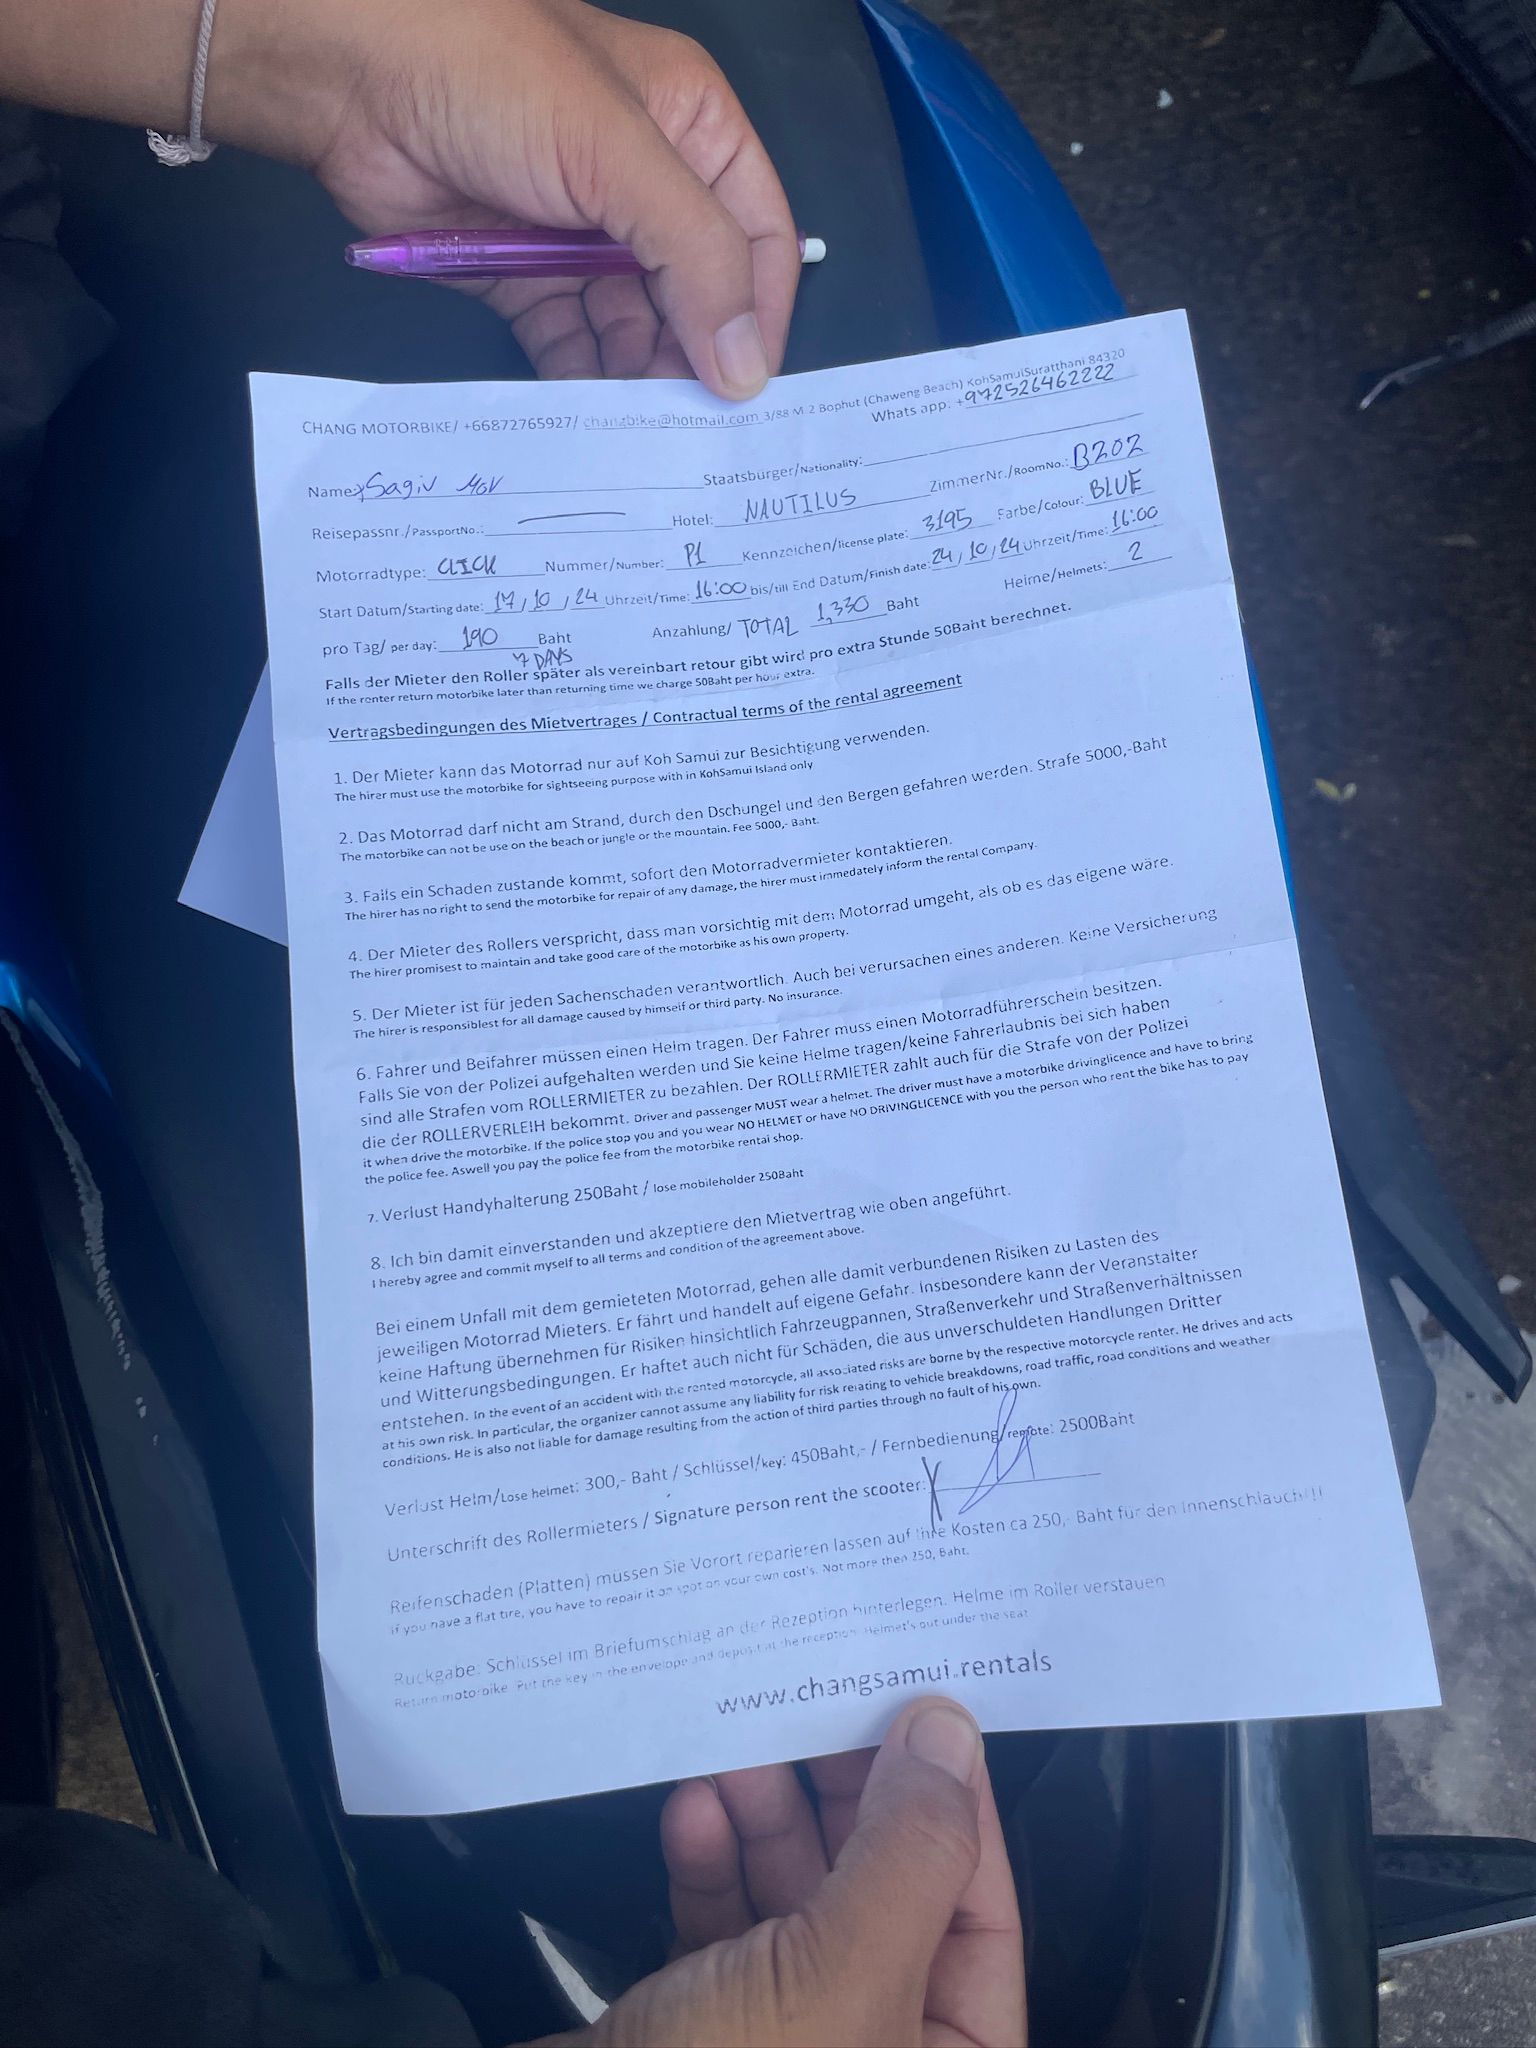 CHANG MOTORBIKE/ +66872765927/ changbike@hotmail.com 3/88 M.2 Bophut (Chaweng Beach) KohSamuiSuratthani 84320
Whats app: +972526462222
Name: Sagiv Mor Staatsbürger/Nationality:
Reisepassnr./PassportNo.: Hotel: NAUTILUS ZimmerNr./RoomNo.: B202
Motorradtype: CLICK Nummer/Number: P1 Kennzeichen/license plate: 3195 Farbe/Colour: BLUE
Start Datum/Starting date: 17/10/24 Uhrzeit/Time: 16:00 bis/till End Datum/Finish date: 24/10/24 Uhrzeit/Time: 16:00
pro Tag/ per day: 190 Baht Anzahlung/ TOTAL 1,330 Baht Helme/Helmets: 2
7 DAYS
Falls der Mieter den Roller später als vereinbart retour gibt wird pro extra Stunde 50Baht berechnet.
If the renter return motorbike later than returning time we charge 50Baht per hour extra.
Vertragsbedingungen des Mietvertrages / Contractual terms of the rental agreement
1. Der Mieter kann das Motorrad nur auf Koh Samui zur Besichtigung verwenden.
The hirer must use the motorbike for sightseeing purpose with in KohSamui Island only
2. Das Motorrad darf nicht am Strand, durch den Dschungel und den Bergen gefahren werden. Strafe 5000,-Baht
The motorbike can not be use on the beach or jungle or the mountain. Fee 5000,- Baht.
3. Falls ein Schaden zustande kommt, sofort den Motorradvermieter kontaktieren.
The hirer has no right to send the motorbike for repair of any damage, the hirer must immedately inform the rental Company.
4. Der Mieter des Rollers verspricht, dass man vorsichtig mit dem Motorrad umgeht, als ob es das eigene wäre.
The hirer promisest to maintain and take good care of the motorbike as his own property.
5. Der Mieter ist für jeden Sachenschaden verantwortlich. Auch bei verursachen eines anderen. Keine Versicherung
The hirer is responsiblest for all damage caused by himself or third party. No insurance.
6. Fahrer und Beifahrer müssen einen Helm tragen. Der Fahrer muss einen Motorradführerschein besitzen.
Falls Sie von der Polizei aufgehalten werden und Sie keine Helme tragen/keine Fahrerlaubnis bei sich haben
sind alle Strafen vom ROLLERMIETER zu bezahlen. Der ROLLERMIETER zahlt auch für die Strafe von der Polizei
die der ROLLERVERLEIH bekommt. Driver and passenger MUST wear a helmet. The driver must have a motorbike drivinglicence and have to bring
it when drive the motorbike. If the police stop you and you wear NO HELMET or have NO DRIVINGLICENCE with you the person who rent the bike has to pay
the police fee. Aswell you pay the police fee from the motorbike rental shop.
7. Verlust Handyhalterung 250Baht / lose mobileholder 250Baht
8. Ich bin damit einverstanden und akzeptiere den Mietvertrag wie oben angeführt.
I hereby agree and commit myself to all terms and condition of the agreement above.
Bei einem Unfall mit dem gemieteten Motorrad, gehen alle damit verbundenen Risiken zu Lasten des
jeweiligen Motorrad Mieters. Er fährt und handelt auf eigene Gefahr. Insbesondere kann der Veranstalter
keine Haftung übernehmen für Risiken hinsichtlich Fahrzeugpannen, Straßenverkehr und Straßenverhältnissen
und Witterungsbedingungen. Er haftet auch nicht für Schäden, die aus unverschuldeten Handlungen Dritter
entstehen. In the event of an accident with the rented motorcycle, all associated risks are borne by the respective motorcycle renter. He drives and acts
at his own risk. In particular, the organizer cannot assume any liability for risk relating to vehicle breakdowns, road traffic, road conditions and weather
conditions. He is also not liable for damage resulting from the action of third parties through no fault of his own.
Verlust Helm/Lose helmet: 300,- Baht / Schlüssel/key: 450Baht,- / Fernbedienung/remote: 2500Baht
Unterschrift des Rollermieters / Signature person rent the scooter: X
Reifenschaden (Platten) müssen Sie Vorort reparieren lassen auf Ihre Kosten ca 250,- Baht für den Innenschlauch!!!
If you have a flat tire, you have to repair it on spot on your own cost's. Not more then 250, Baht.
Rückgabe: Schlüssel im Briefumschlag an der Rezeption hinterlegen. Helme im Roller verstauen
Return motorbike. Put the key in the envelope and deposit at the reception. Helmet's out under the seat
www.changsamui.rentals